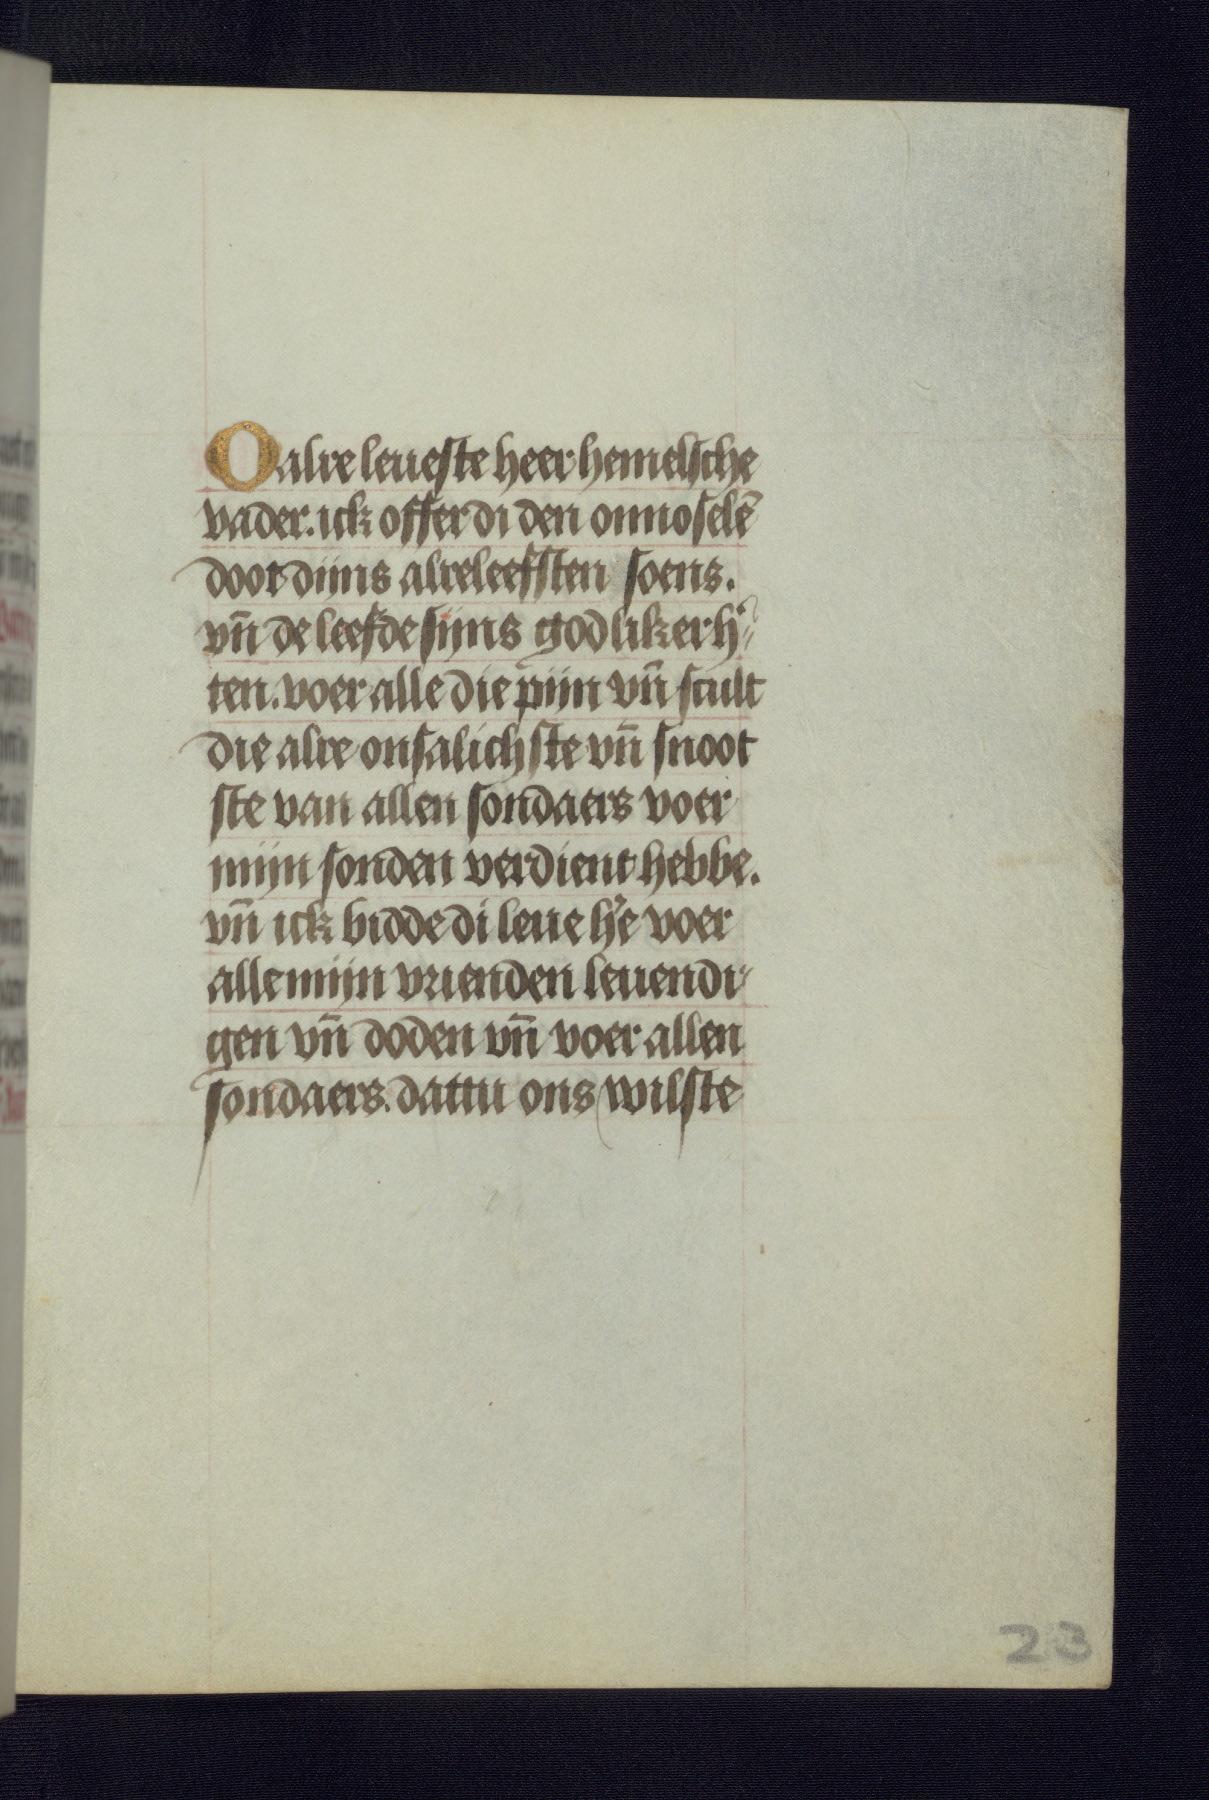 O alre leueste heer hemelsche
vader. ick offer di den onnoselē
doot dijns alreleefsten soens.
vn̄ de leefde sijns godliker h'
ten. voer alle die pijn vn̄ scult
die alre onsalichste vn̄ snoot
ste van allen sondaers voer
mijn sonden verdient hebbe.
vn̄ ick bidde di leue h'e voer
alle mijn vrienden leuendi
gen vn̄ doden vn̄ voer allen
sondaers. dattu ons wilste
23